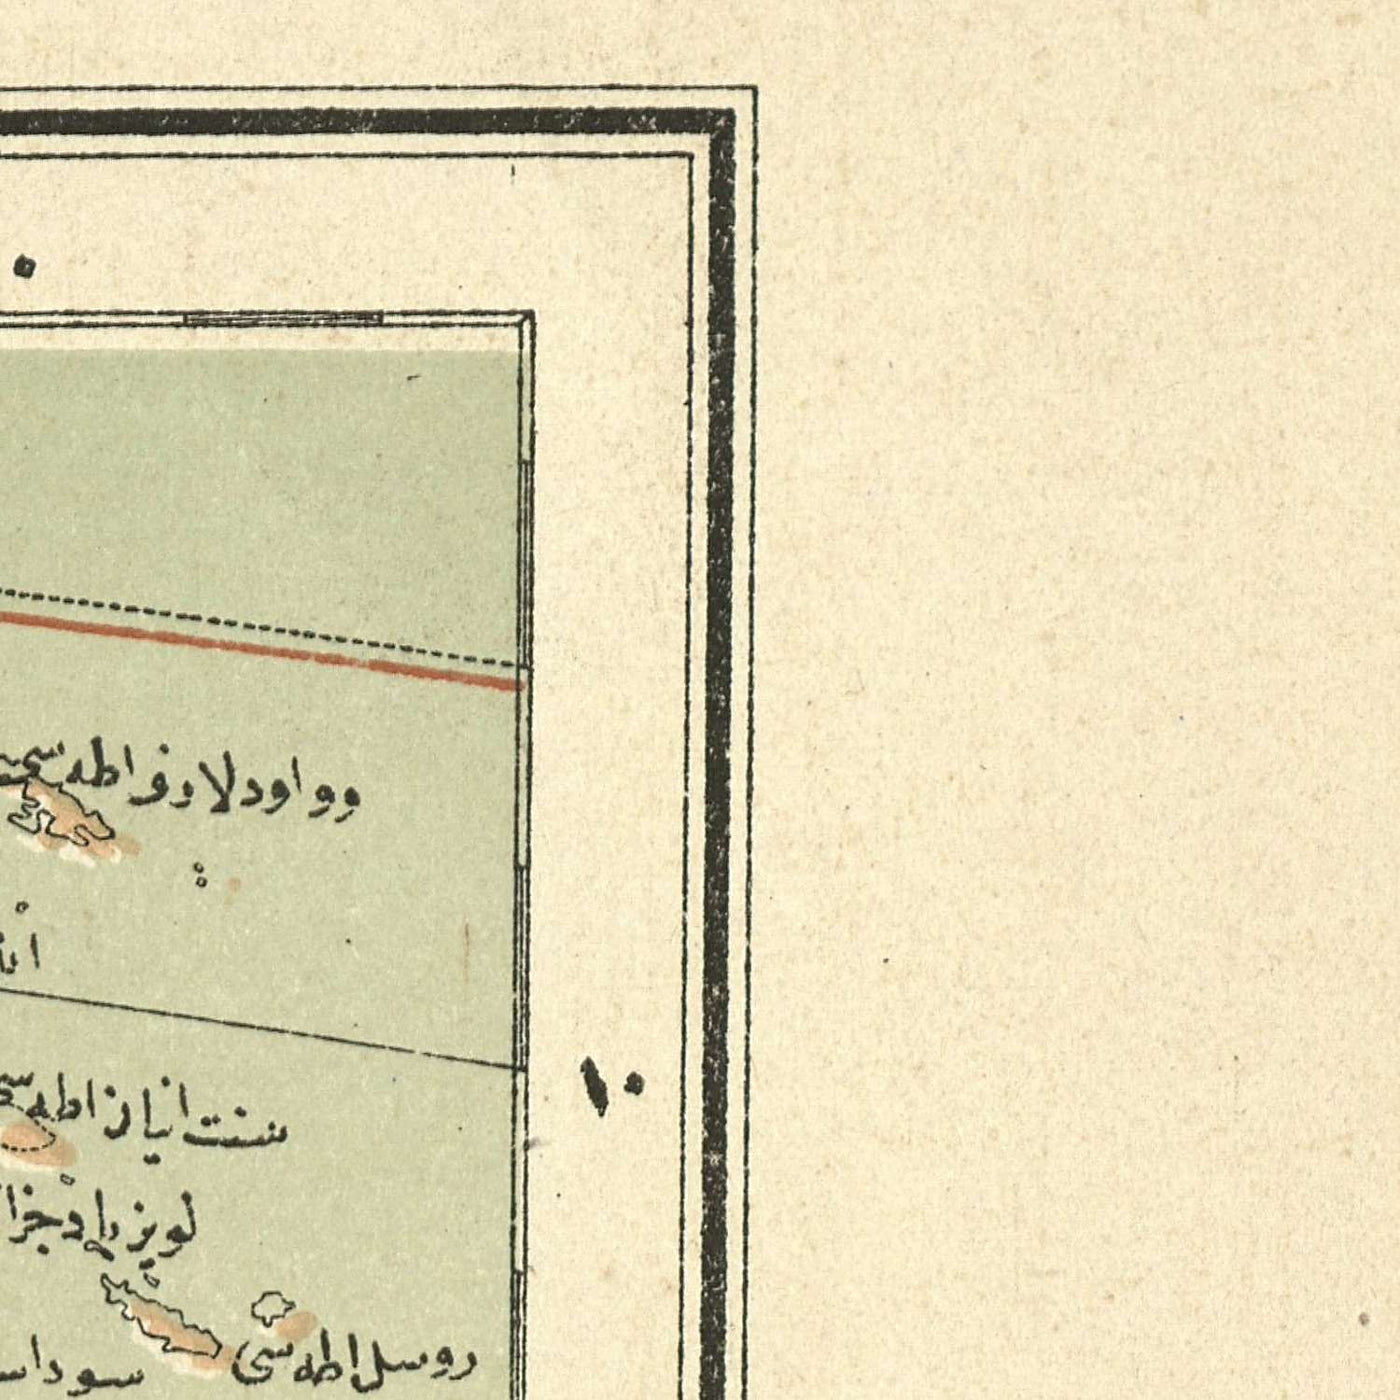 ٠
وواودلارق اطه سی
١٠
سنت انیاز اطه سی
لویزیاد جزا
روسل اطه سی
سوداس